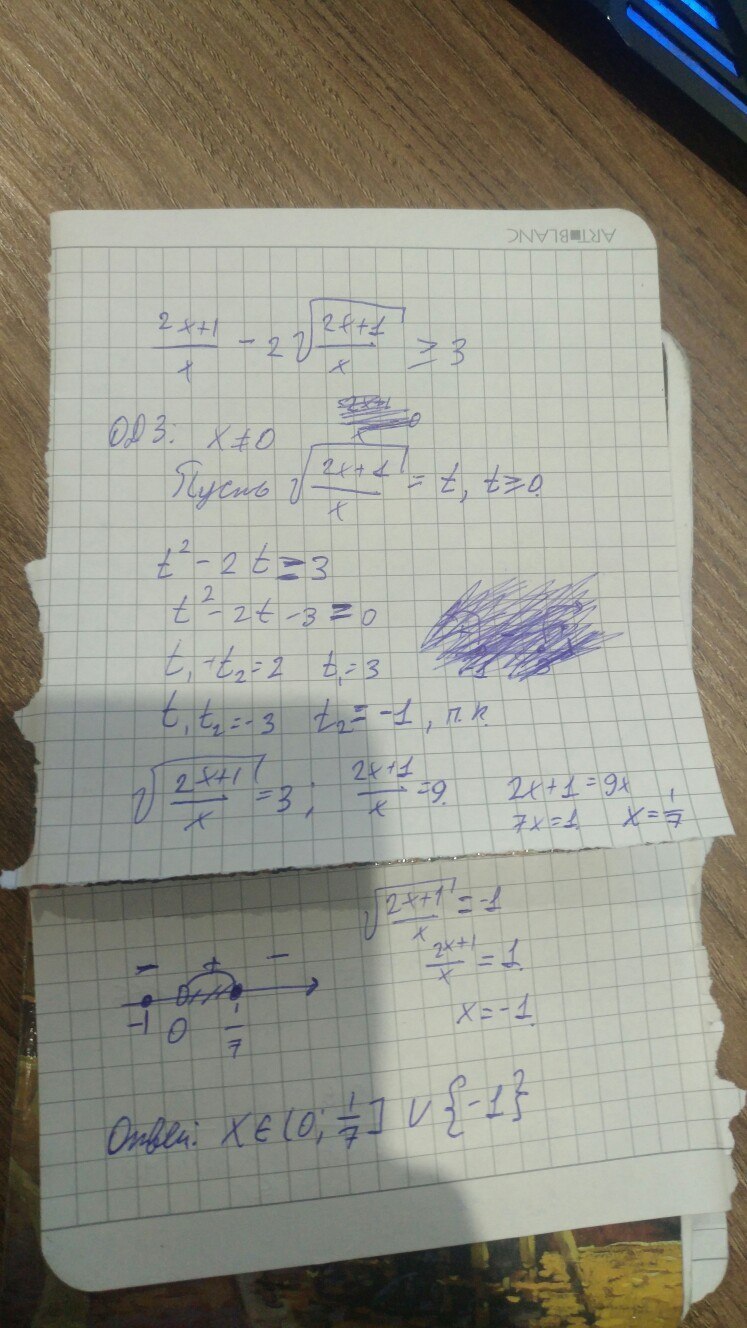 ART■BLANC
(2x+1)/x - 2√((2x+1)/x) ≥ 3
ОДЗ: x≠0
Пусть √((2x+1)/x) = t, t≥0.
t² - 2t ≥ 3
t² - 2t - 3 = 0
t₁ + t₂ = 2 t₁ = 3
t₁ t₂ = -3 t₂ = -1, п.к.
√((2x+1)/x) = 3; (2x+1)/x = 9. 2x+1 = 9x
7x = 1. x = 1/7
√((2x+1)/x) = -1
(2x+1)/x = 1.
x = -1.
- + -
-1 0 1/7
Ответ: x ∈ (0; 1/7] ∪ {-1}